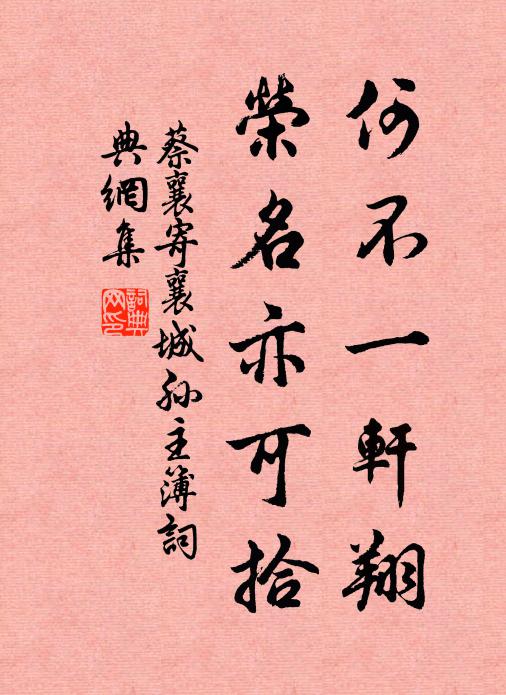 何不一軒翔
榮名亦可拾
蔡襄寄襄城孙主簿詞
典網集
詞典网印